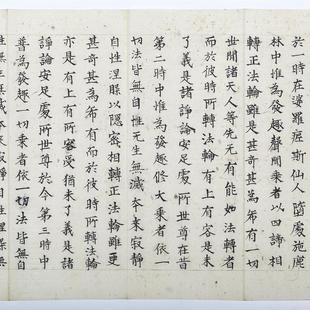 於一時在婆羅痆斯仙人墮處施鹿
林中惟為發趣聲聞乘者以四諦相
轉正法輪雖是甚奇甚為希有一切
世間諸天人等先无有能如法轉者
而於彼時所轉法輪有上有容是未
了義是諸諍論安足處所世尊在昔
第二時中惟為發趣修大乘者依一
切法皆無自性无生無滅本來寂靜
自性涅槃以隱密相轉正法輪雖更
甚奇甚為希有而於彼時所轉法輪
亦是有上有所容受猶未了義是諸
諍論安足處所世尊於今第三時中
普為發趣一切乘者依一切法皆無自
性無生無滅本來寂靜自性涅槃無